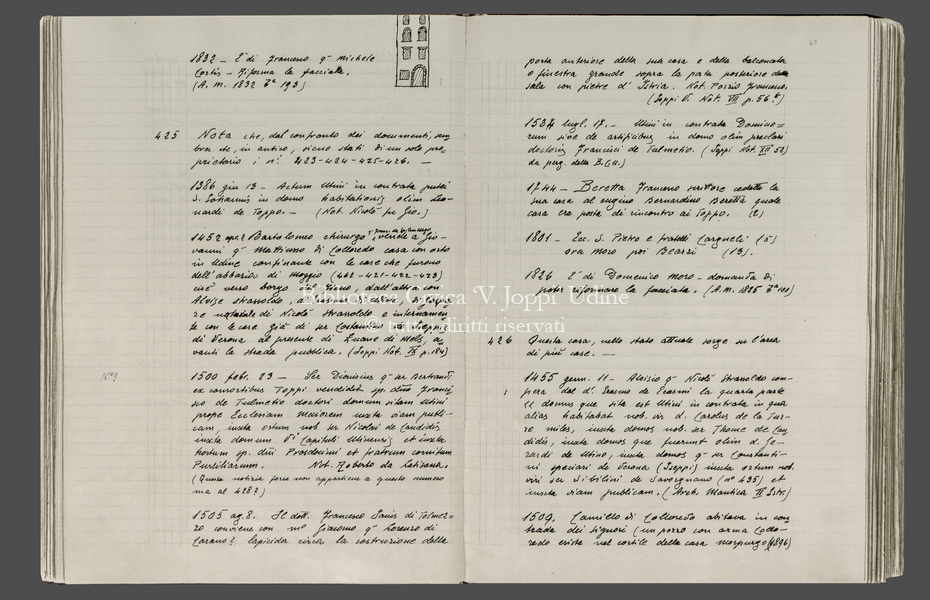 1832 – È di Francesco q.m Michele
Cortis – Riforma la facciata.
(A. M. 1832 193)
425 Nota che, dal confronto dei documenti, sem
bra che, in antico, sieno stati di un solo pro=
prietario i n.i 423-424-425-426. —
1386 giu 13 – Actum Utini in contrata putei
S. Johannis in domo habitationis olim Leo-
nardi de Toppo. – (Not. Nicolò fu Gio.)
1452 Bartolomeo chirurgo vende a Gio-
vanni q.m Mattiuso di Colloredo casa con orto
in Udine confinante con le case che furono
dell'abbazia di Moggio (462-421-422-423)
cioè verso borgo dall'altra con
Alvise Strassoldo,
re di Nicolò Strassoldo e internamen
te con le case già di ser Costantino
di Verona al presente di a
vanti la strada pubblica. (Joppi Not. IX p. 184)
N.o?
1500 febr. 23 – Ser Dionisius q.m ser Bertrandi
ex consortibus Toppi vendidit sp. dno Franci
sco de Tulmetio doctori domum sitam Utini
prope Ecclesiam Maiorem iuxta viam publi-
cam, iuxta ortum nob. ser Nicolai de Candidis
iuxta domum Capituli Utinensis et iuxta
hortum sp. dni Prosdocimi et fratrum comitum
Purliliarum. Not. Roberto da Latisana.
(Questa notizia forse non appartiene a questo numero
ma al 428?)
1505 ag. 8. Il dott. Francesco Janis di Tolmez-
zo conviene con m.o Giacomo q.m Lorenzo di
Carano? lapicida circa la costruzione della
porta anteriore della sua casa e della balconata
o finestra grande sopra la porta posteriore della
sala con pietre d'Istria. Not. Porzio Francesco.
(Joppi V. Not. VII p. 56)
1527 lugl. 17. – Utini in contrata Domino=
rum sive de artificibus in domo olim preclari
doctoris Francisci de Tulmetio. (Joppi Not. XII 52)
da perg. della B. C. U.)
1744 – Beretta Francesco scrittore cedette la
sua casa al cugino Bernardino Beretta quale
casa era posta di rincontro ai Toppo. (2)
1801 – Ecc. S. Pietro e fratelli Cargneli (5)
ora Moro poi Bearzi (13).
1826 È di Domenico Moro – domanda di
poter riformare la facciata. (A. M. 1826 100)
426 Questa casa, nello stato attuale sorge su l'area
di più case. —
1455 genn. 11 – Aloisio q.m Nicolò Strassoldo com-
pera dal d. Erasmo de Erasmi la quarta parte
domus que sita est Utini in contrata in qua
alias habitabat nob. vir d. Carolus de la Tur-
re miles, iuxta domos nob. ser Thome de Can
didis, iuxta domos que fuerunt olim d. Ge-
rardi de Utino, iuxta domos q.m ser Constanti-
ni speciari de Verona (Joppi) iuxta ortum nob.
viri ser Sibilini de Savorgnano (n.o 435) et
iuxta viam publicam. (Arch. Mantica)
1509. Camillo di Colloredo abitava in con
trada dei Signori (un pozzo con arma Collo-
redo esiste nel cortile della casa Morpurgo (1896)
Biblioteca Civica 'V. Joppi' Udine
© tutti i diritti riservati